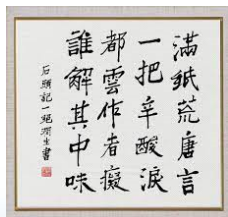 滿紙荒唐言
一把辛酸淚
都雲作者癡
誰解其中味
石頭記一絕潤生書